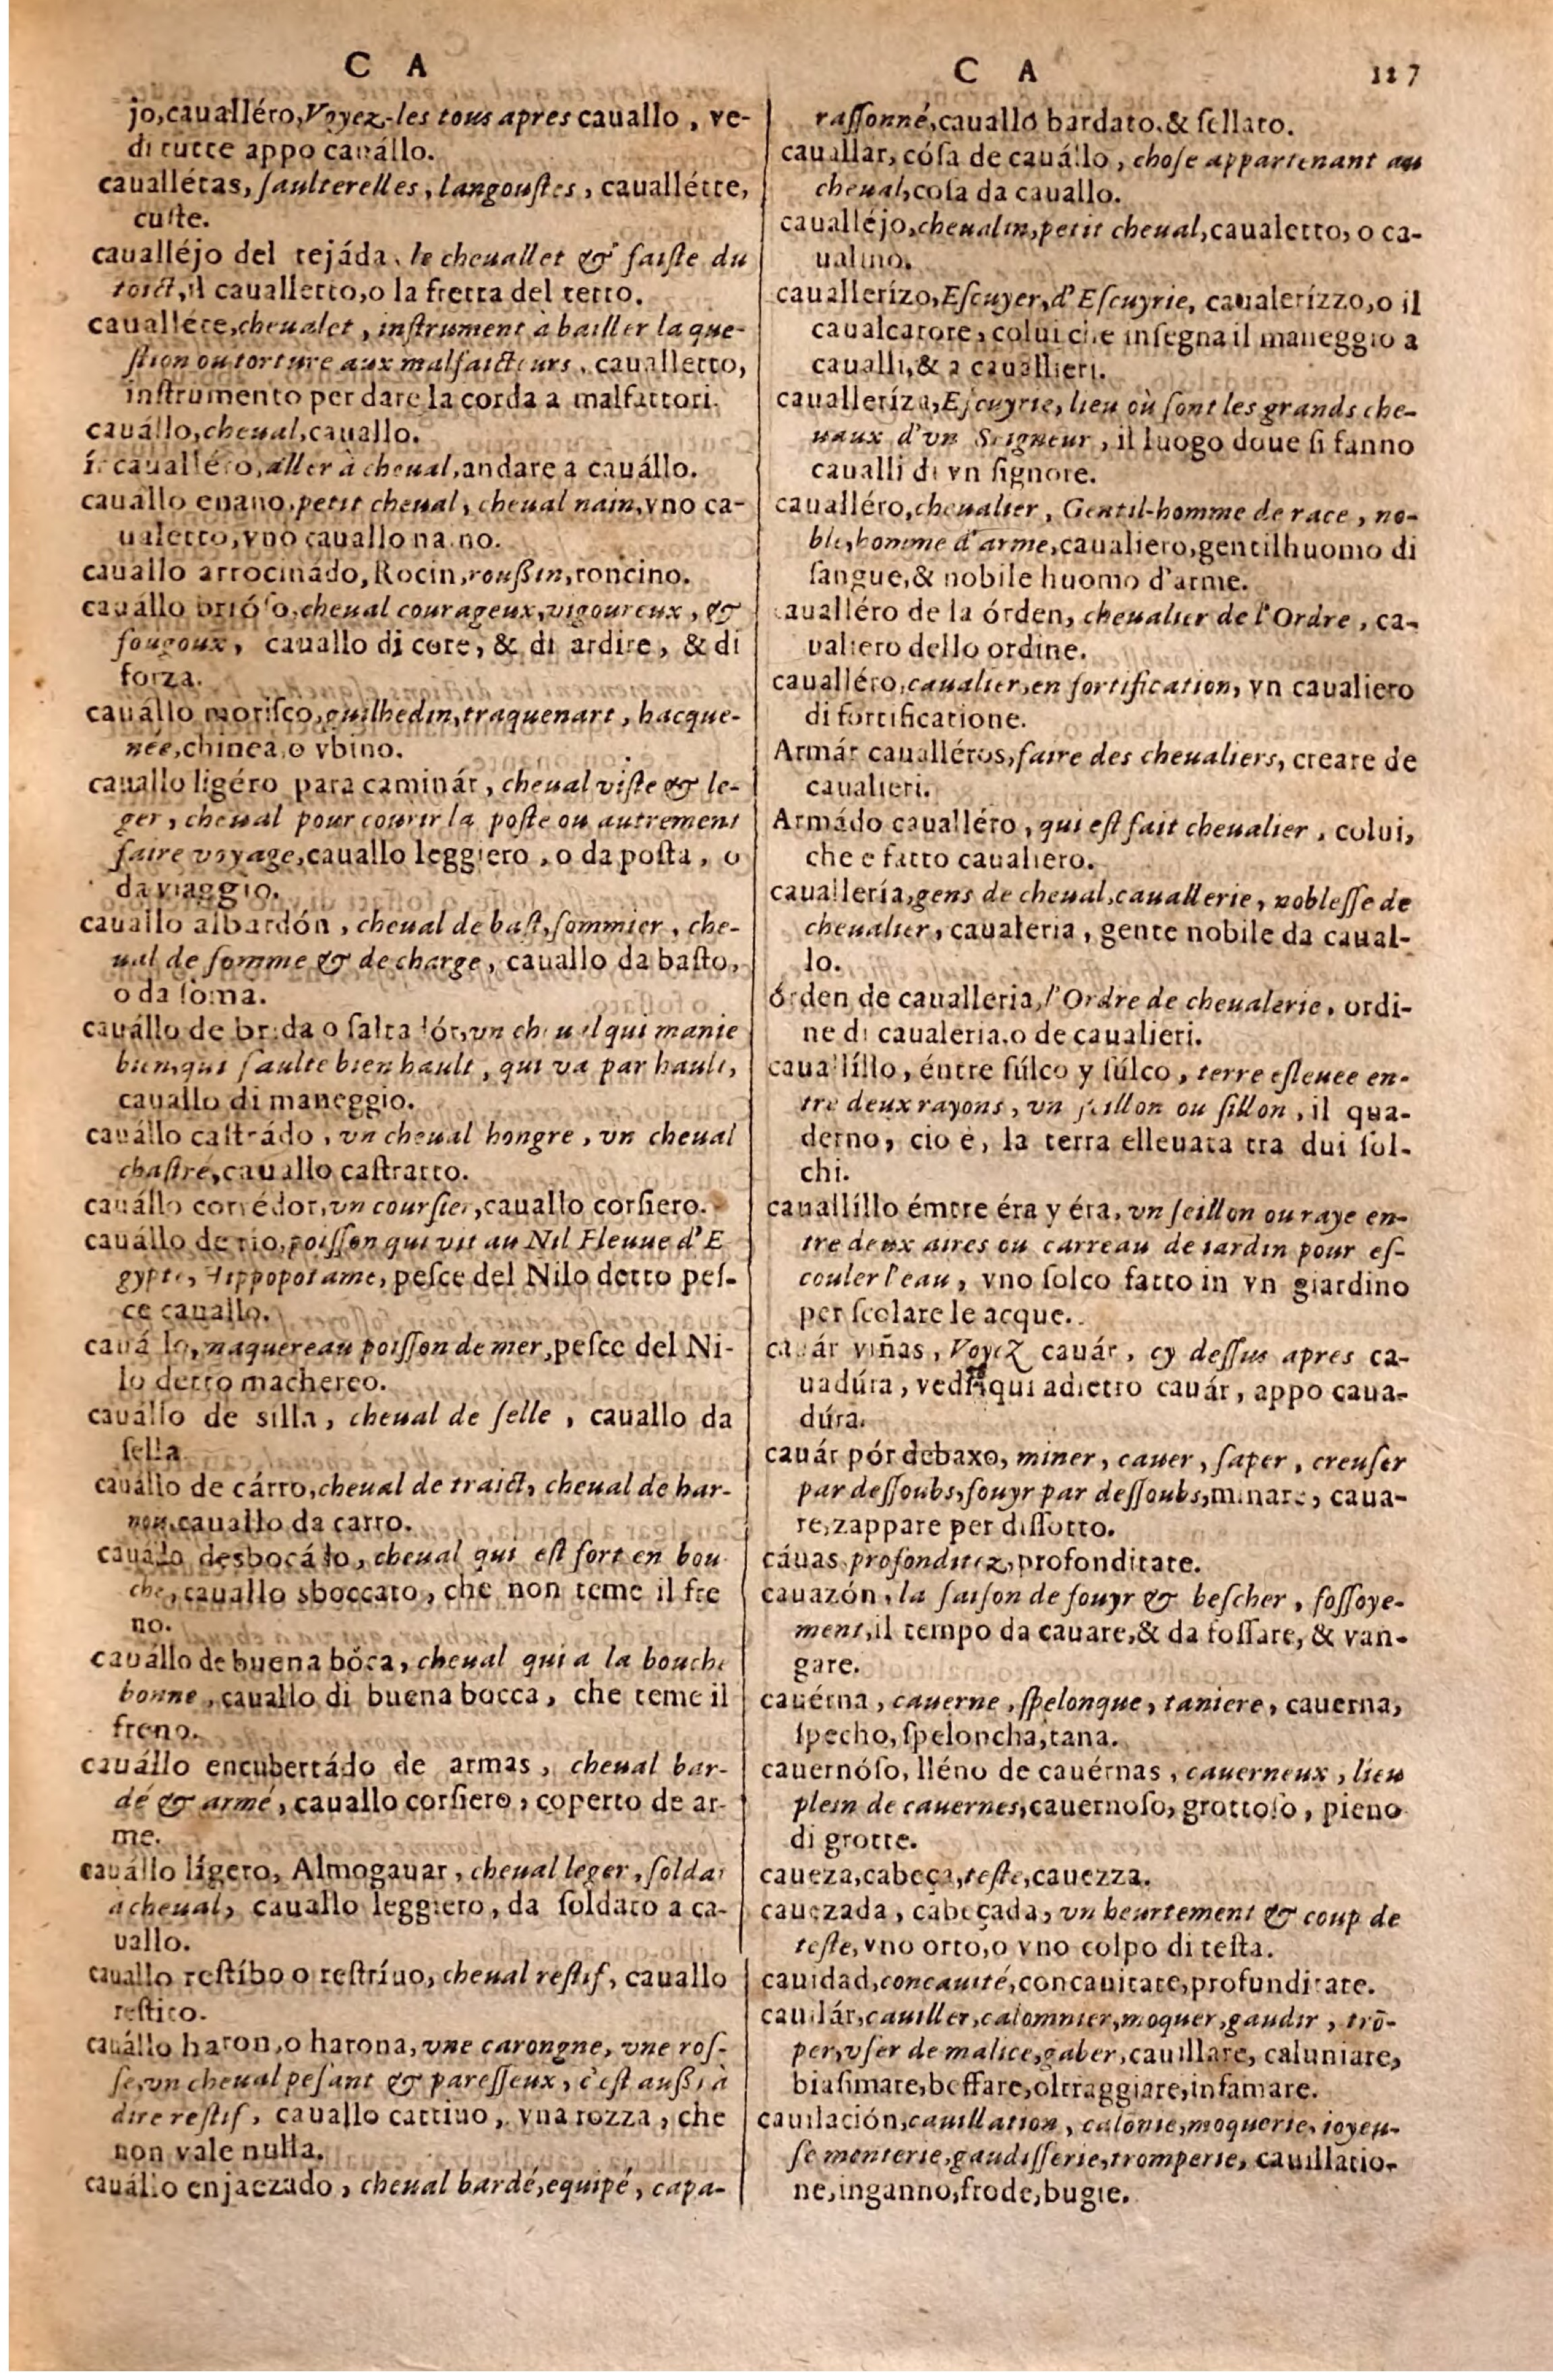 C A
jo,caualléro,Voyez-les tous apres cauallo, ve-
di tutte appo cauállo.
cauallétas, ſaulterelles, langouſtes, cauallétte,
cuſte.
caualléjo del tejáda, le cheuallet & faiſte du
toict,il caualletto,o la fretta del tetto.
cauallére,cheualet, inſtrument à bailler la que-
ſtion ou torture aux malfaicteurs, caualletto,
inſtrumento per dare la corda a malfattori.
cauállo,cheual,cauallo.
ír caualléro,aller à cheual,andare a cauállo.
cauállo enano,petit cheual, cheual nain,vno ca-
ualetto,vno cauallo nano.
cauallo arrocinádo,Rocin,roußin,roncino.
cauállo brióſo,cheual courageux,vigoureux, &
fougoux, cauallo di core, & di ardire, & di
forza.
cauállo moriſco,guilhedin,traquenart, hacque-
née,chinea,o vbino.
cauallo ligéro para caminár, cheual viſte & le-
ger, cheual pour courir la poſte ou autrement
faire voyage,cauallo leggiero, o da poſta, o
da viaggio.
cauallo albardón, cheual de baſt,ſommier, che-
ual de ſomme & de charge, cauallo da baſto,
o da ſoma.
cauállo de brida o ſaltadór,vn cheual qui manie
bien,qui ſaulte bien hault, qui va par hault,
cauallo di maneggio.
cauállo caſtrádo, vn cheual hongre, vn cheual
chaſtré,cauallo caſtratto.
cauállo corrédor,vn courſier,cauallo corſiero.
cauállo de rio,poiſſon qui vit au Nil Fleuue d'E
gypte, Hippopotame, peſce del Nilo detto peſ-
ce cauallo.
cauállo,maquereau poiſſon de mer,peſce del Ni-
lo detto machereo.
cauállo de silla, cheual de ſelle, cauallo da
ſella
cauállo de cárro,cheual de traict, cheual de har-
nou,cauallo da carro.
cauálo desbocádo, cheual qui eſt fort en bou
che, cauallo sboccato, che non teme il fre
no.
cauállo de buena bóca, cheual qui a la bouche
bonne, cauallo di buena bocca, che teme il
freno.
cauállo encubertádo de armas, cheual bar-
dé & armé, cauallo corſiero, coperto de ar-
me.
cauállo lígero, Almogauar, cheual leger, ſoldat
à cheual, cauallo leggiero, da ſoldato a ca-
uallo.
cauallo reſtíbo o reſtríuo, cheual reſtif, cauallo
reſtito.
cauállo haron,o harona, vne carongne, vne roſ-
ſe,vn cheual peſant & pareſſeux, c'eſt außi à
dire reſtif, cauallo cattiuo, vna rozza, che
non vale nulla.
cauállo enjaezado, cheual bardé,equipé, capa-
C A 117
raſſonné,cauallo bardato,& ſellato.
cauallar, cóſa de cauállo, choſe appartenant au
cheual,coſa da cauallo.
caualléjo,cheualin,petit cheual,caualetto, o ca-
ualino.
cauallerízo,Eſcuyer,d'Eſcuyrie, caualerizzo,o il
caualcatore, colui che inſegna il maneggio a
caualli,& a cauallieri.
cauallería,Eſcuyrie, lieu où ſont les grands che-
uaux d'vn Seigneur, il luogo doue ſi fanno
caualli di vn ſignore.
cauálléro,cheualier, Gentil-homme de race, no-
ble,homme d'arme,caualiero,gentilhuomo di
ſangue,& nobile huomo d'arme.
cauálléro de la órden, cheualier de l'Ordre, ca-
ualiero dello ordine.
cauálléro,caualier,en fortification, vn caualiero
di fortificatione.
Armár cauálléros,faire des cheualiers, creare de
caualieri.
Armádo cauálléro, qui eſt fait cheualier, colui,
che e fatto caualiero.
cauallería,gens de cheual,cauallerie, nobleſſe de
cheualier, caualeria, gente nobile da caual-
lo.
órden de caualleria,l'Ordre de cheualerie, ordi-
ne di caualeria,o de caualieri.
cauallíllo, éntre ſúlco y ſúlco, terre eſleuee en-
tre deux rayons, vn ſeillon ou ſillon, il qua-
derno, cio è, la terra elleuata tra dui ſol-
chi.
cauallíllo émtre éra y éra, vn ſeillon ou raye en-
tre deux aires ou carreau de iardin pour eſ-
couler l'eau, vno ſolco fatto in vn giardino
per ſcolare le acque.
cauár viñas, Voyez cauár, cy deſſus apres ca-
uadúra, vedi qui adietro cauár, appo caua-
dúra.
cauár pór debaxo, miner, cauer, ſaper, creuſer
par deſſoubs,fouyr par deſſoubs,minare, caua-
re,zappare per diſſotto.
cáuas profonditez,profonditate.
cauazón, la ſaiſon de fouyr & beſcher, foſſoye-
ment,il tempo da cauare,& da foſſare, & van-
gare.
cauérna, cauerne, ſpelonque, taniere, cauerna,
ſpecho,ſpeloncha,tana.
cauernóſo, lléno de cauérnas, cauerneux, lieu
plein de cauernes,cauernoſo, grottoſo, pieno
di grotte.
caueza,cabeça,teſte,cauezza.
cauezada, cabeçada, vn heurtement & coup de
teſte, vno orto,o vno colpo di teſta.
cauidad,concauité,concauitate,profunditate.
cauilár,cauiller,calomnier,moquer,gaudir, trō-
per,vſer de malice,gaber,cauillare, caluniare,
biaſimare,beffare,oltraggiare,infamare.
cauilación,cauillation, calōnie,moquerie,ioyeu-
ſe menterie,gaudiſſerie,tromperie, cauillatio-
ne,inganno,frode,bugie.